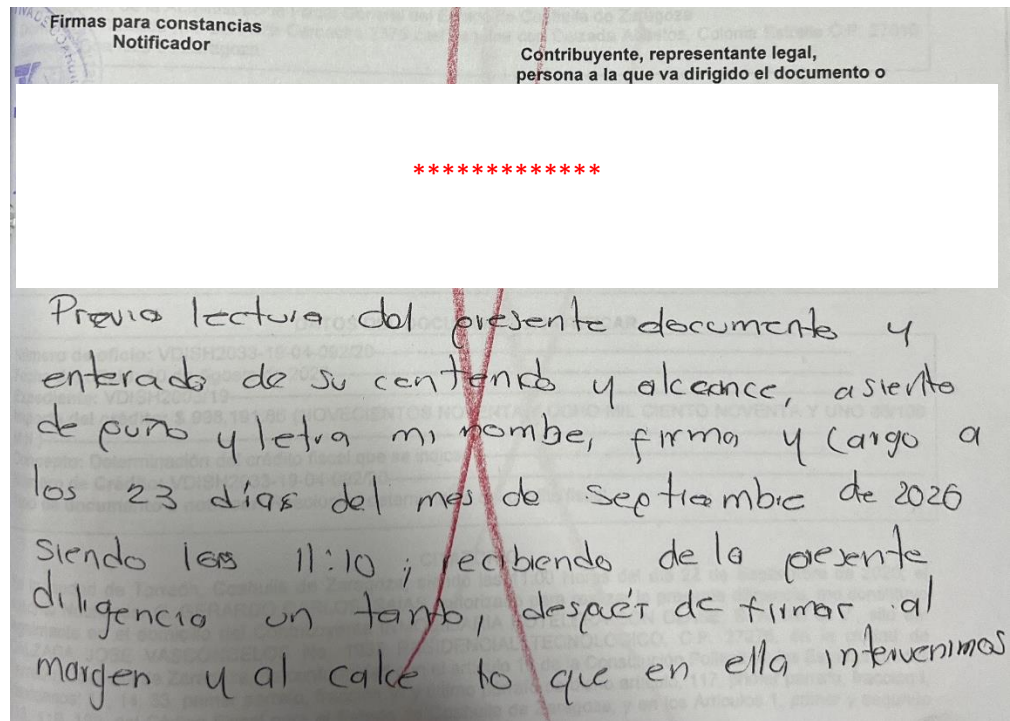 Firmas para constancias
Notificador
Contribuyente, representante legal,
persona a la que va dirigido el documento o
*************
Previa lectura del presente documento y
enterado de su contenido y alcance, asiento
de puño y letra mi nombe, firma y cargo a
los 23 días del mes de Septiembre de 2020
siendo las 11:10 ; recibiendo de la presente
diligencia un tanto, despues de firmar al
margen y al calce lo que en ella intervenimos